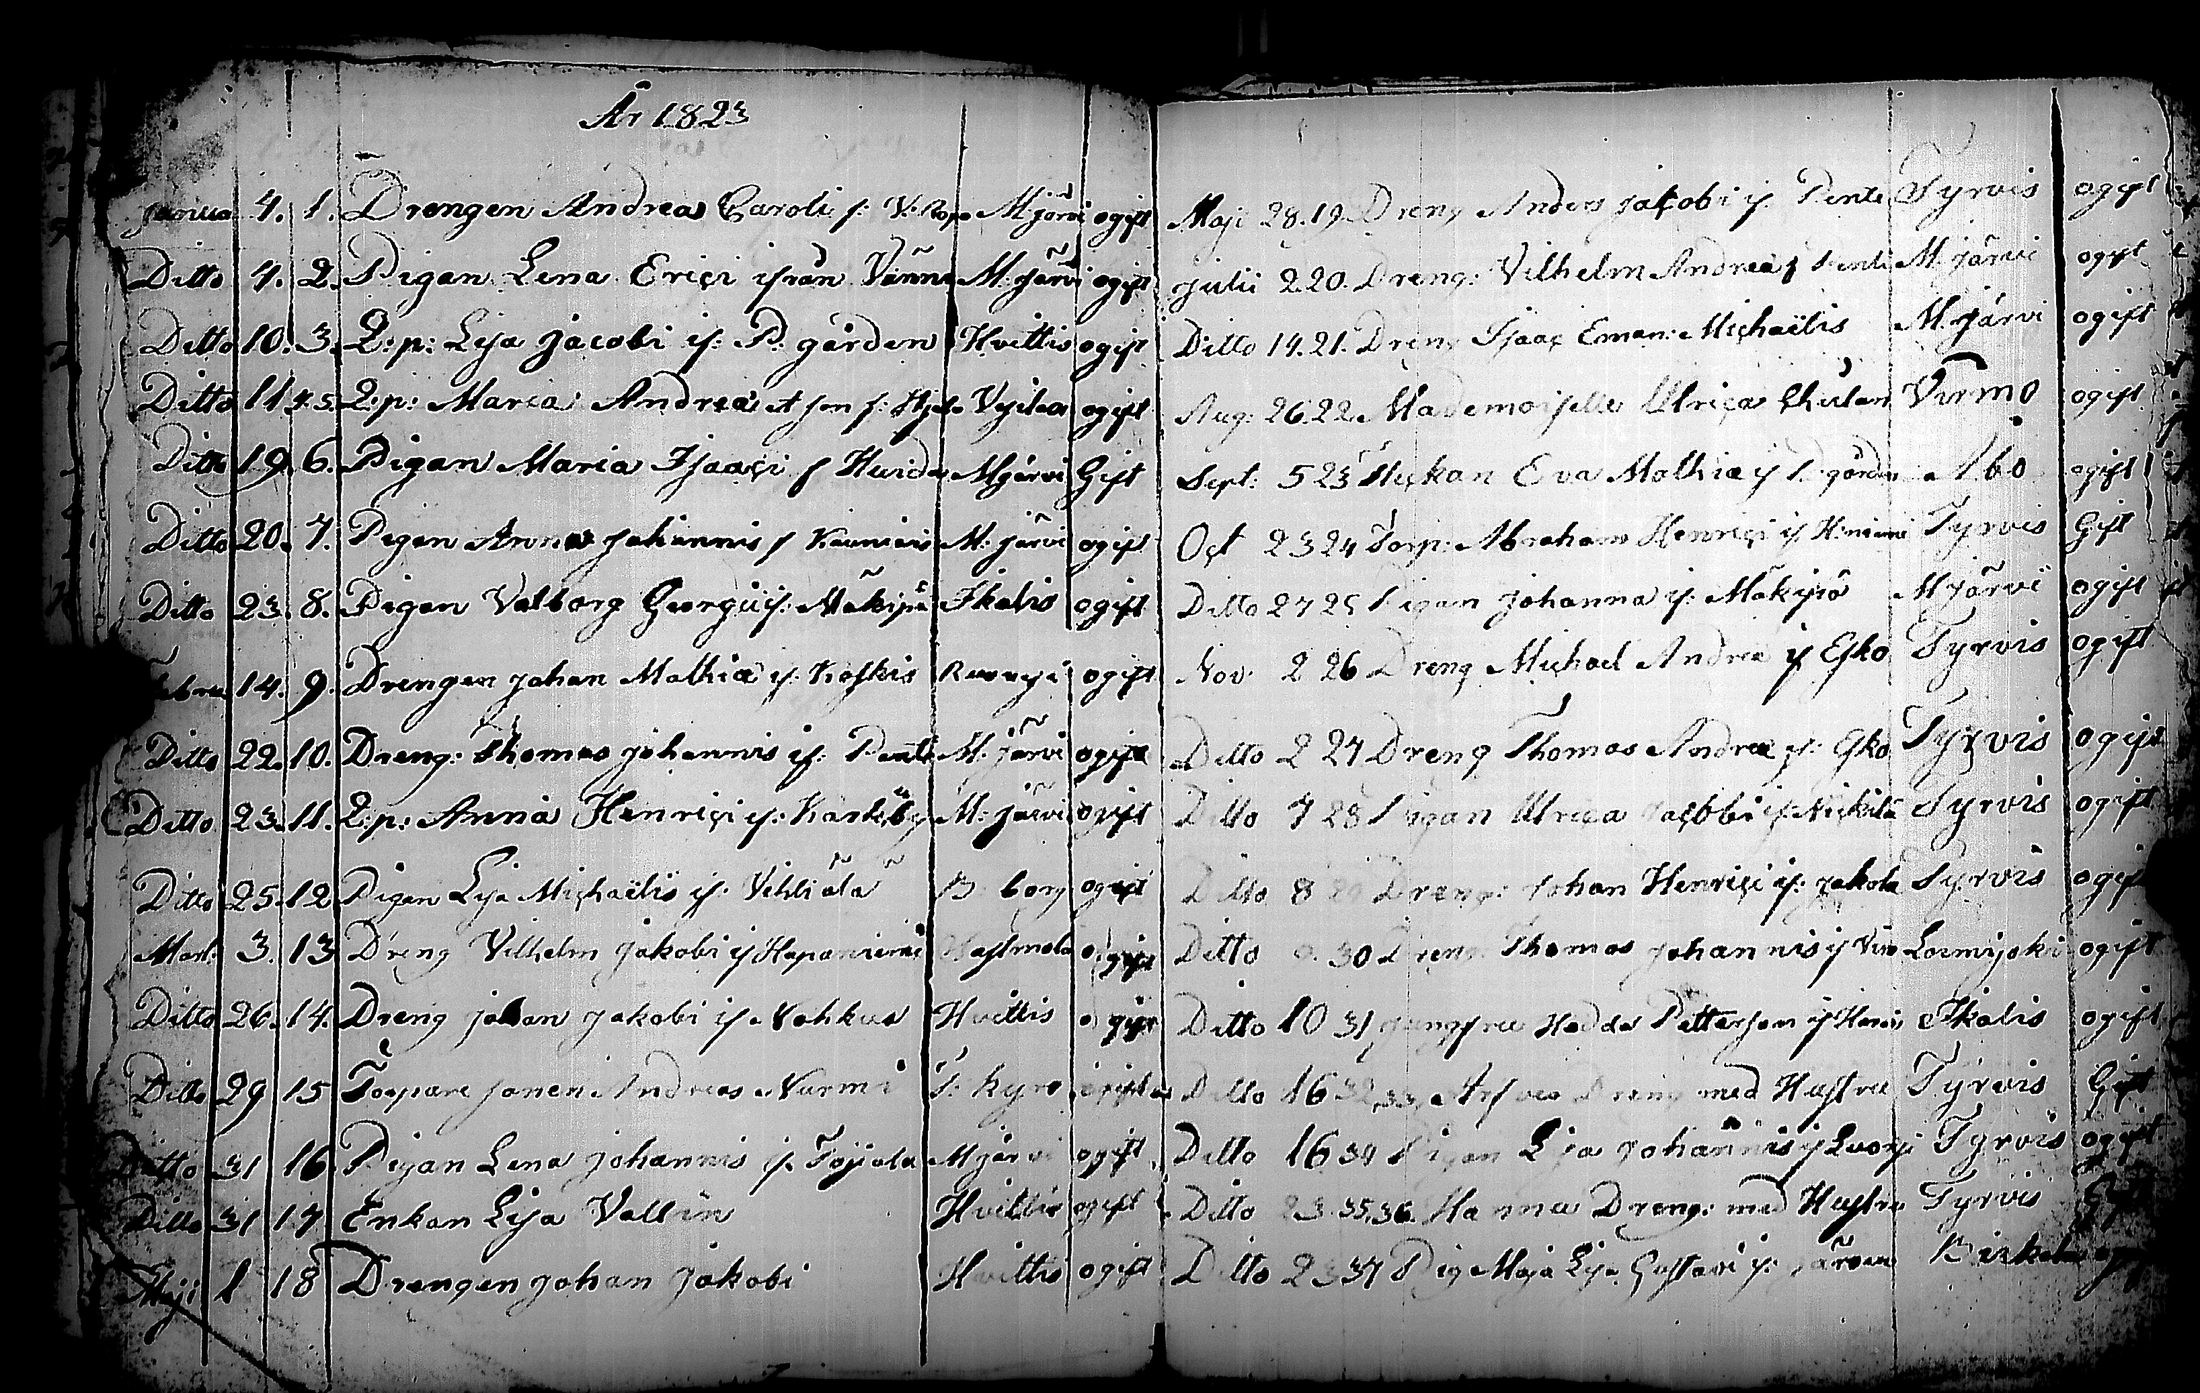 År 1823
Janua 4. 1. Drengen Andreas Caroli f: M:järvi ogift
Ditto 4. 2. Pigan Lena Eriçi ifrån Vänni M:järvi ogift
Ditto 10. 3. I:p: Lisa Jacobi if: P: gården Hvittis ogift
Ditto 11 4.5. I:p: Maria Andreæ et son f: ogift
Ditto 19. 6. Pigan Maria Isaaçi f Huida M:järvi Gift
Ditto 20. 7. Pigan Anna Johannis f M:järvi ogift
Ditto 23. 8. Pigan Valborg Georgii if: Mäkipä Ikalis ogift
Febru 14. 9. Drengen Johan Mathiæ if: Koskis ogift
Ditto 22. 10. Dreng: Thomas Johannis if: Pentti M:järvi ogift
Ditto 23. 11. I:p: Anna Henriçi if: Karkkby M:järvi ogift
Ditto 25. 12 Pigan Lisa Miçhaëlis if: B:borg ogift
Mart: 3. 13 Dreng Vilhelm Jakobi if Hapaniemi ogift
Ditto 26. 14. Dreng Johan Jakobi if Nohkua Hvittis ogift
Ditto 29 15 Torpare sonen Andreas Nurmi T: kyro ogift
Ditto 31 16 Pigan Lena Johannis if: M:järvi ogift
Ditto 31 17 Enkan Lisa Vallin Hvittis ogift
Maji 1 18 Drengen Johan Jakobi Hvittis ogift
Maji 28. 19. Dreng Anders Jakobi if Pente Tyrvis ogift
Julii 2 20. Dreng: Vilhelm Andreæ f Penti M:järvi ogift
Ditto 14. 21. Dreng Isaaç Eman: Miçhaëlis M:järvi ogift
Aug: 26 22. Mademoiselle Ulriça Virmo ogift
Sept: 5 23 Eva Mathiæ if P:gården Åbo ogift
Oçt 23 24 Torp: Abraham Henriçi if Tyrvis Gift
Ditto 27 25 Pigan Johanna if: Mäkipä M:järvi ogift
Nov: 2 26 Dreng Miçhael Andreæ if Esko Tyrvis ogift
Ditto 2 27 Dreng Thomas Andreæ if: Esko Tyrvis ogift
Ditto 7 28 Pigan Ulriça Jaçobi if: Niçkilä Tyrvis ogift
Ditto 8 29 Dreng: Johan Henriçi if: Jakola Tyrvis ogift
Ditto 30 Dreng Thomas Johannis if Loimijoki ogift
Ditto 10 31 Jungfru Hedda Petterson if Ikalis ogift
Ditto 16 32,33, Dreng med Hustru Tyrvis Gift
Ditto 16 34 Pigan Lisa Johannis if Tyrvis ogift
Ditto 23. 35,36. Dreng: med Hustru Tyrvis Gift
Ditto 23 37 Pig Maja Lisa Gustavi if: Järven